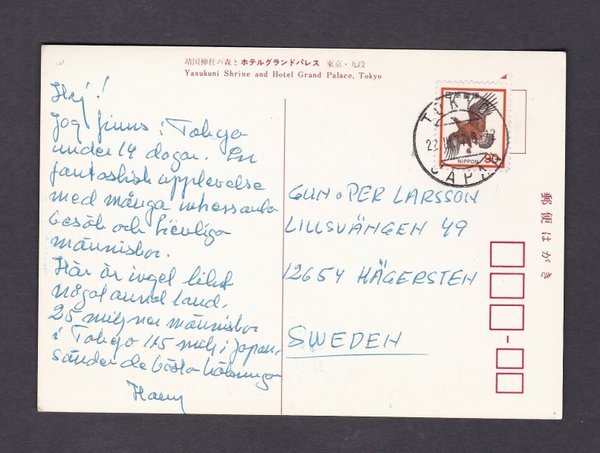 靖国神社の森とホテルグランドパレス 東京・九段
Yasukuni Shrine and Hotel Grand Palace, Tokyo
Hej!
Jag finns i Tokyo
under 14 dagar. En
fantastisk upplevelse
med många intressanta
besök och trevliga
människor.
Här är inget likt
något annat land.
25 miljner människor
i Tokyo 115 milj i Japan.
sänder de bästa hälsningar
Harry
TOKYO
22
JAPAN
NIPPON
90
GUN o PER LARSSON
LILLSVÄNGEN 49
12654 HÄGERSTEN
SWEDEN
郵便はがき